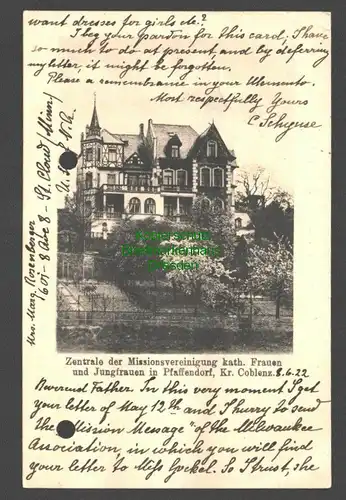 want dresses for girls etc.?
I beg your pardon for this card; I have
so much to do at present and by deferring
my letter, it might be forgotten.
Please a remembrance in your Memento.
Most respectfully Yours
C Schynse
Mrs. Marg. Rosenberger
1601 - 8 Ave 8 - St. Cloud (Minn)
U. S. N. A.
Zentrale der Missionsvereinigung kath. Frauen
und Jungfrauen in Pfaffendorf, Kr. Coblenz.
8.6.22
Reverend Father. In this very moment I get
your letter of May 12th and I hurry to send
the "Mission Message" of the Milwaukee
Association, in which you will find
your letter to Miss Gockel. So I trust, she